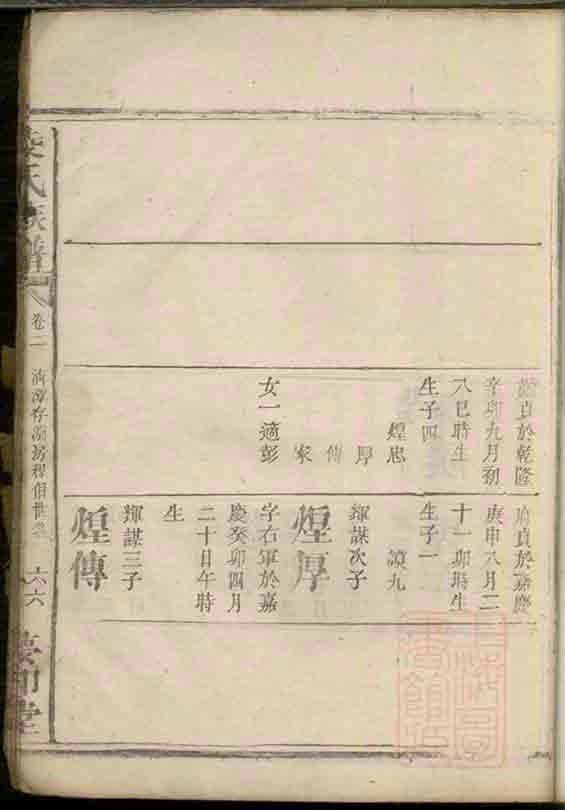 貞於乾隆
辛卯九月初
八巳時生
生子四
煌忠
厚
傳
家
女一適彭
貞於嘉慶
庚申八月二
十一卯時生
生子一
謨九
煌厚
輝謀次子
字石軍於嘉
慶癸卯四月
二十日午時
生
煌傳
輝謀三子
氏族譜
卷二
世
六六
堂